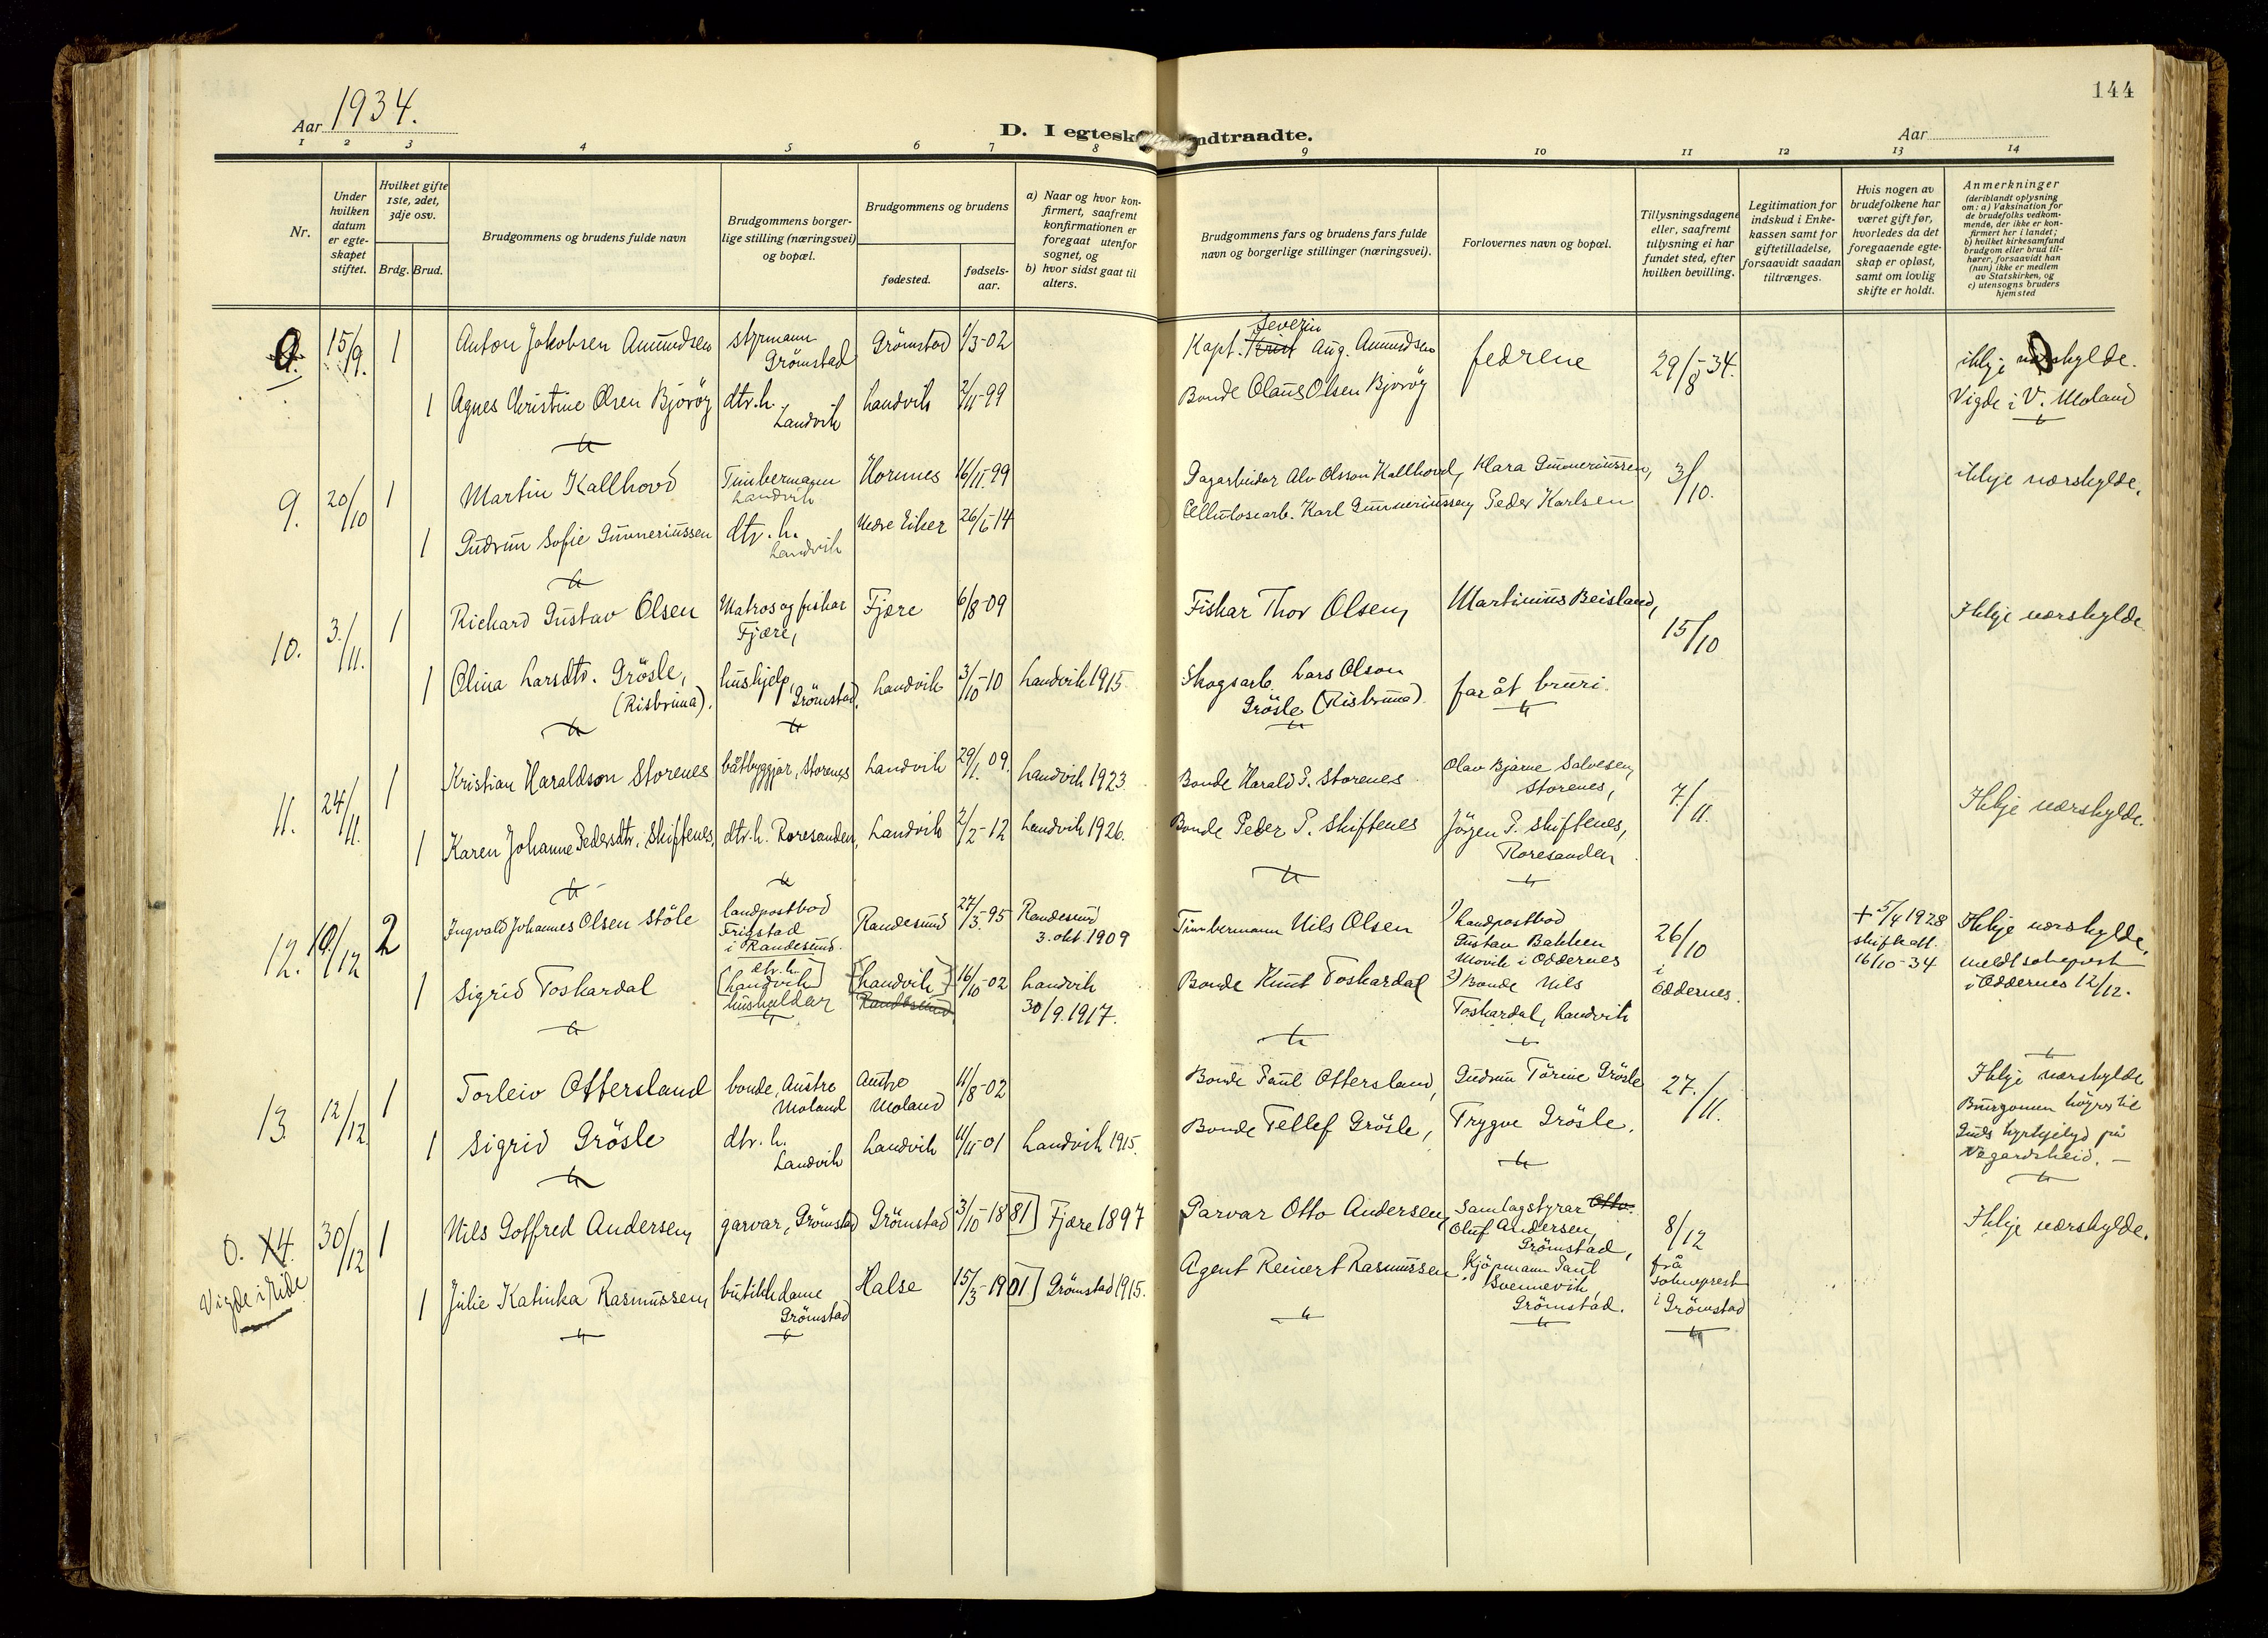 144
Aar 1934.
D. I egtesk ndtraadte.
Aar
1 2 3 4 5 6 7 8 9 10 11 12 13 14
Nr.
Under hvilken datum er egte-skapet stiftet.
Hvilket gifte 1ste, 2det, 3dje osv.
Brdg. Brud.
Brudgommens og brudens fulde navn
Brudgommens borger-lige stilling (næringsvei) og bopæl.
Brudgommens og brudens
fødested.
fødsels-aar.
a) Naar og hvor kon-firmert, saafremt konfirmationen er foregaat utenfor sognet, og
b) hvor sidst gaat til alters.
Brudgommens fars og brudens fars fulde navn og borgerlige stillinger (næringsvei).
Forlovernes navn og bopæl.
Tillysningsdagene eller, saafremt tillysning ei har fundet sted, efter hvilken bevilling.
Legitimation for indskud i Enke-kassen samt for giftetilladelse, forsaavidt saadan tiltrænges.
Hvis nogen av brudefolkene har været gift før, hvorledes da det foregaaende egte-skap er opløst, samt om lovlig skifte er holdt.
Anmerkninger
(deriblandt oplysning om: a) Vaksination for de brudefolks vedkom-mende, der ikke er kon-firmert her i landet;
b) hvilket kirkesamfund brudgom eller brud til-hører, forsaavidt han (hun) ikke er medlem av Statskirken, og
c) utensogns bruders hjemsted
0. 15/9. 1 Anton Jakobsen Amundsen styrmann Grömstad Grömstad 1/3-02 Kapt. Severin Aug. Amundsen fedrene 29/8-34. ikkje nærskylde.
1 Agnes Christine Olsen Bjorög dtr. h. Landvik Landvik 2/11-99 Bonde Olaus Olsen Bjorög Vigde i V. Moland
9. 20/10 1 Martin Kallhovd Timbermann Landvik Hornnes 16/11.99 Dagarbeidar Alv Olsson Kallhovd, Klara Gunneriussen, 3/10. ikkje nærskylde.
1 Gudrun Sofie Gunneriussen dtr. h. Landvik Nedre Eiker 26/6-14 Cellulosearb. Karl Gunneriussen, Peder Karlsen
10. 3./11. 1 Richard Gustav Olsen Matros og fiskar Fjære, Fjære 6/8-09 Fiskar Thor Olsen, Martinius Beisland, 15/10 Ikkje nærskylde
1 Olina Larsdtr. Grösle, (Risbruna). hushjelp, Grömstad. Landvik 3/10-10 Landvik 1915. Skogsarb. Lars Olson Grösle (Risbruna) far åt bruri.
11. 24/11. 1 Kristian Haraldson Storenes båtbyggjar, Storenes Landvik 29/1. 09. Landvik 1923. Bonde Harald P. Storenes Olav Bjarne Salvesen, Storenes, 7/11. Ikkje nærskylde.
1 Karen Johanne Pedersdtr. Skiftenes, dtr. h. Roresanden, Landvik 2/2-12 Landvik 1926. Bonde Peder P. Skiftenes Jörgen P. Skiftenes, Roresanden
12. 19/12 2 Ingvald Johannes Olsen Stöle landpostbod Frigstad i Randesund. Randesund 27/3.95 Randesund 3. okt. 1909 Timbermann Nils Olsen 1) Landpostbod Gustav Bakken Movik i Oddernes 26/10 i Oddernes. + 5/4 1928 skifteatt. 16/10-34 Ikkje nærskylde, meldt sokneprest i Oddernes 12/12.
1 Sigrid Toskardal [dtr. h. Landvik] hushaldar [Landvik] Randesund 16/10-02 Landvik 30/9. 1917. Bonde Knut Toskardal 2) Bonde Nils Toskardal, Landvik
13. 12/12. 1 Torleiv Ottersland bonde, Austre Moland Austre Moland 11/8-02 Bonde Paul Ottersland, Gudrun Torine Grösle 27./11. Ikkje nærskylde
Brurgomen höyrer til Guds kyrkjelyd på Vegardsheid. —
1 Sigrid Grösle dtr. h. Landvik Landvik 11/11-01 Landvik 1915. Bonde Tellef Grösle, Trygve Grösle.
0. 14. Vigde i Eide 30/12 1 Nils Gotfred Andersen, garvar, Grömstad Grömstad 3/10-1881] Fjære 1897 Garvar Otto Andersen, Samlagstyrar Otto. Oluf Andersen, Grömstad, 8/12 frå sokneprest i Grömstad Ikkje nærskylde.
1 Julie Katinka Rasmussen, butikkdame Grömstad Halse 15/3-1901] Grömstad 1915. Agent Reinert Rasmussen Kjöpmann Paul Svennevik, Grömstad.